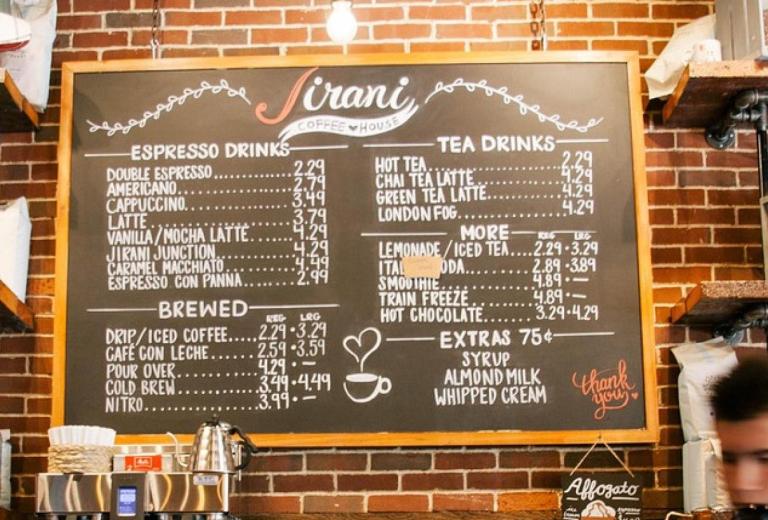 Jirani
COFFEE HOUSE
ESPRESSO DRINKS
DOUBLE ESPRESSO.......... 2.29
AMERICANO.......... 2.79
CAPPUCCINO.......... 3.49
LATTE.......... 3.79
VANILLA/MOCHA LATTE.......... 4.29
JIRANI JUNCTION.......... 4.29
CARAMEL MACCHIATO.......... 4.49
ESPRESSO CON PANNA.......... 2.99
BREWED
REG LRG
DRIP/ICED COFFEE..... 2.29 • 3.29
CAFÉ CON LECHE..... 2.59 • 3.59
POUR OVER.......... 4.29 • —
COLD BREW.......... 3.49 • 4.49
NITRO.......... 3.99 • —
TEA DRINKS
HOT TEA.......... 2.29
CHAI TEA LATTE.......... 4.29
GREEN TEA LATTE.......... 4.29
LONDON FOG.......... 4.29
MORE
REG LRG
LEMONADE/ICED TEA.... 2.29 • 3.29
ODA.......... 2.89 • 3.89
SMOOTHIE.......... 4.89 • —
TRAIN FREEZE.......... 4.89 • —
HOT CHOCOLATE.......... 3.29 • 4.29
EXTRAS 75¢
SYRUP
ALMOND MILK
WHIPPED CREAM
thank you
Affogato